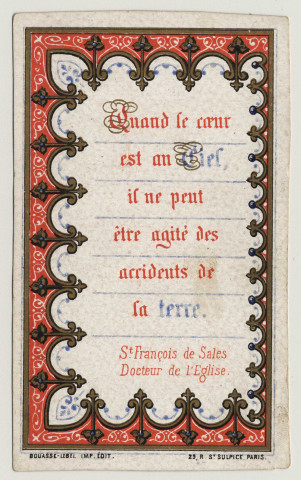 Quand le cœur
est au Ciel,
il ne peut
être agité des
accidents de
la terre.
St François de Sales
Docteur de l'Eglise.
BOUASSE-LEBEL IMP. ÉDIT. 29, R. St SULPICE PARIS.